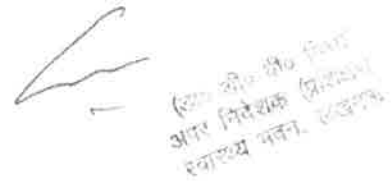 (डा० सी० पी०
अपर निदेशक (प्रशासन)
स्वास्थ्य भवन, लखनऊ